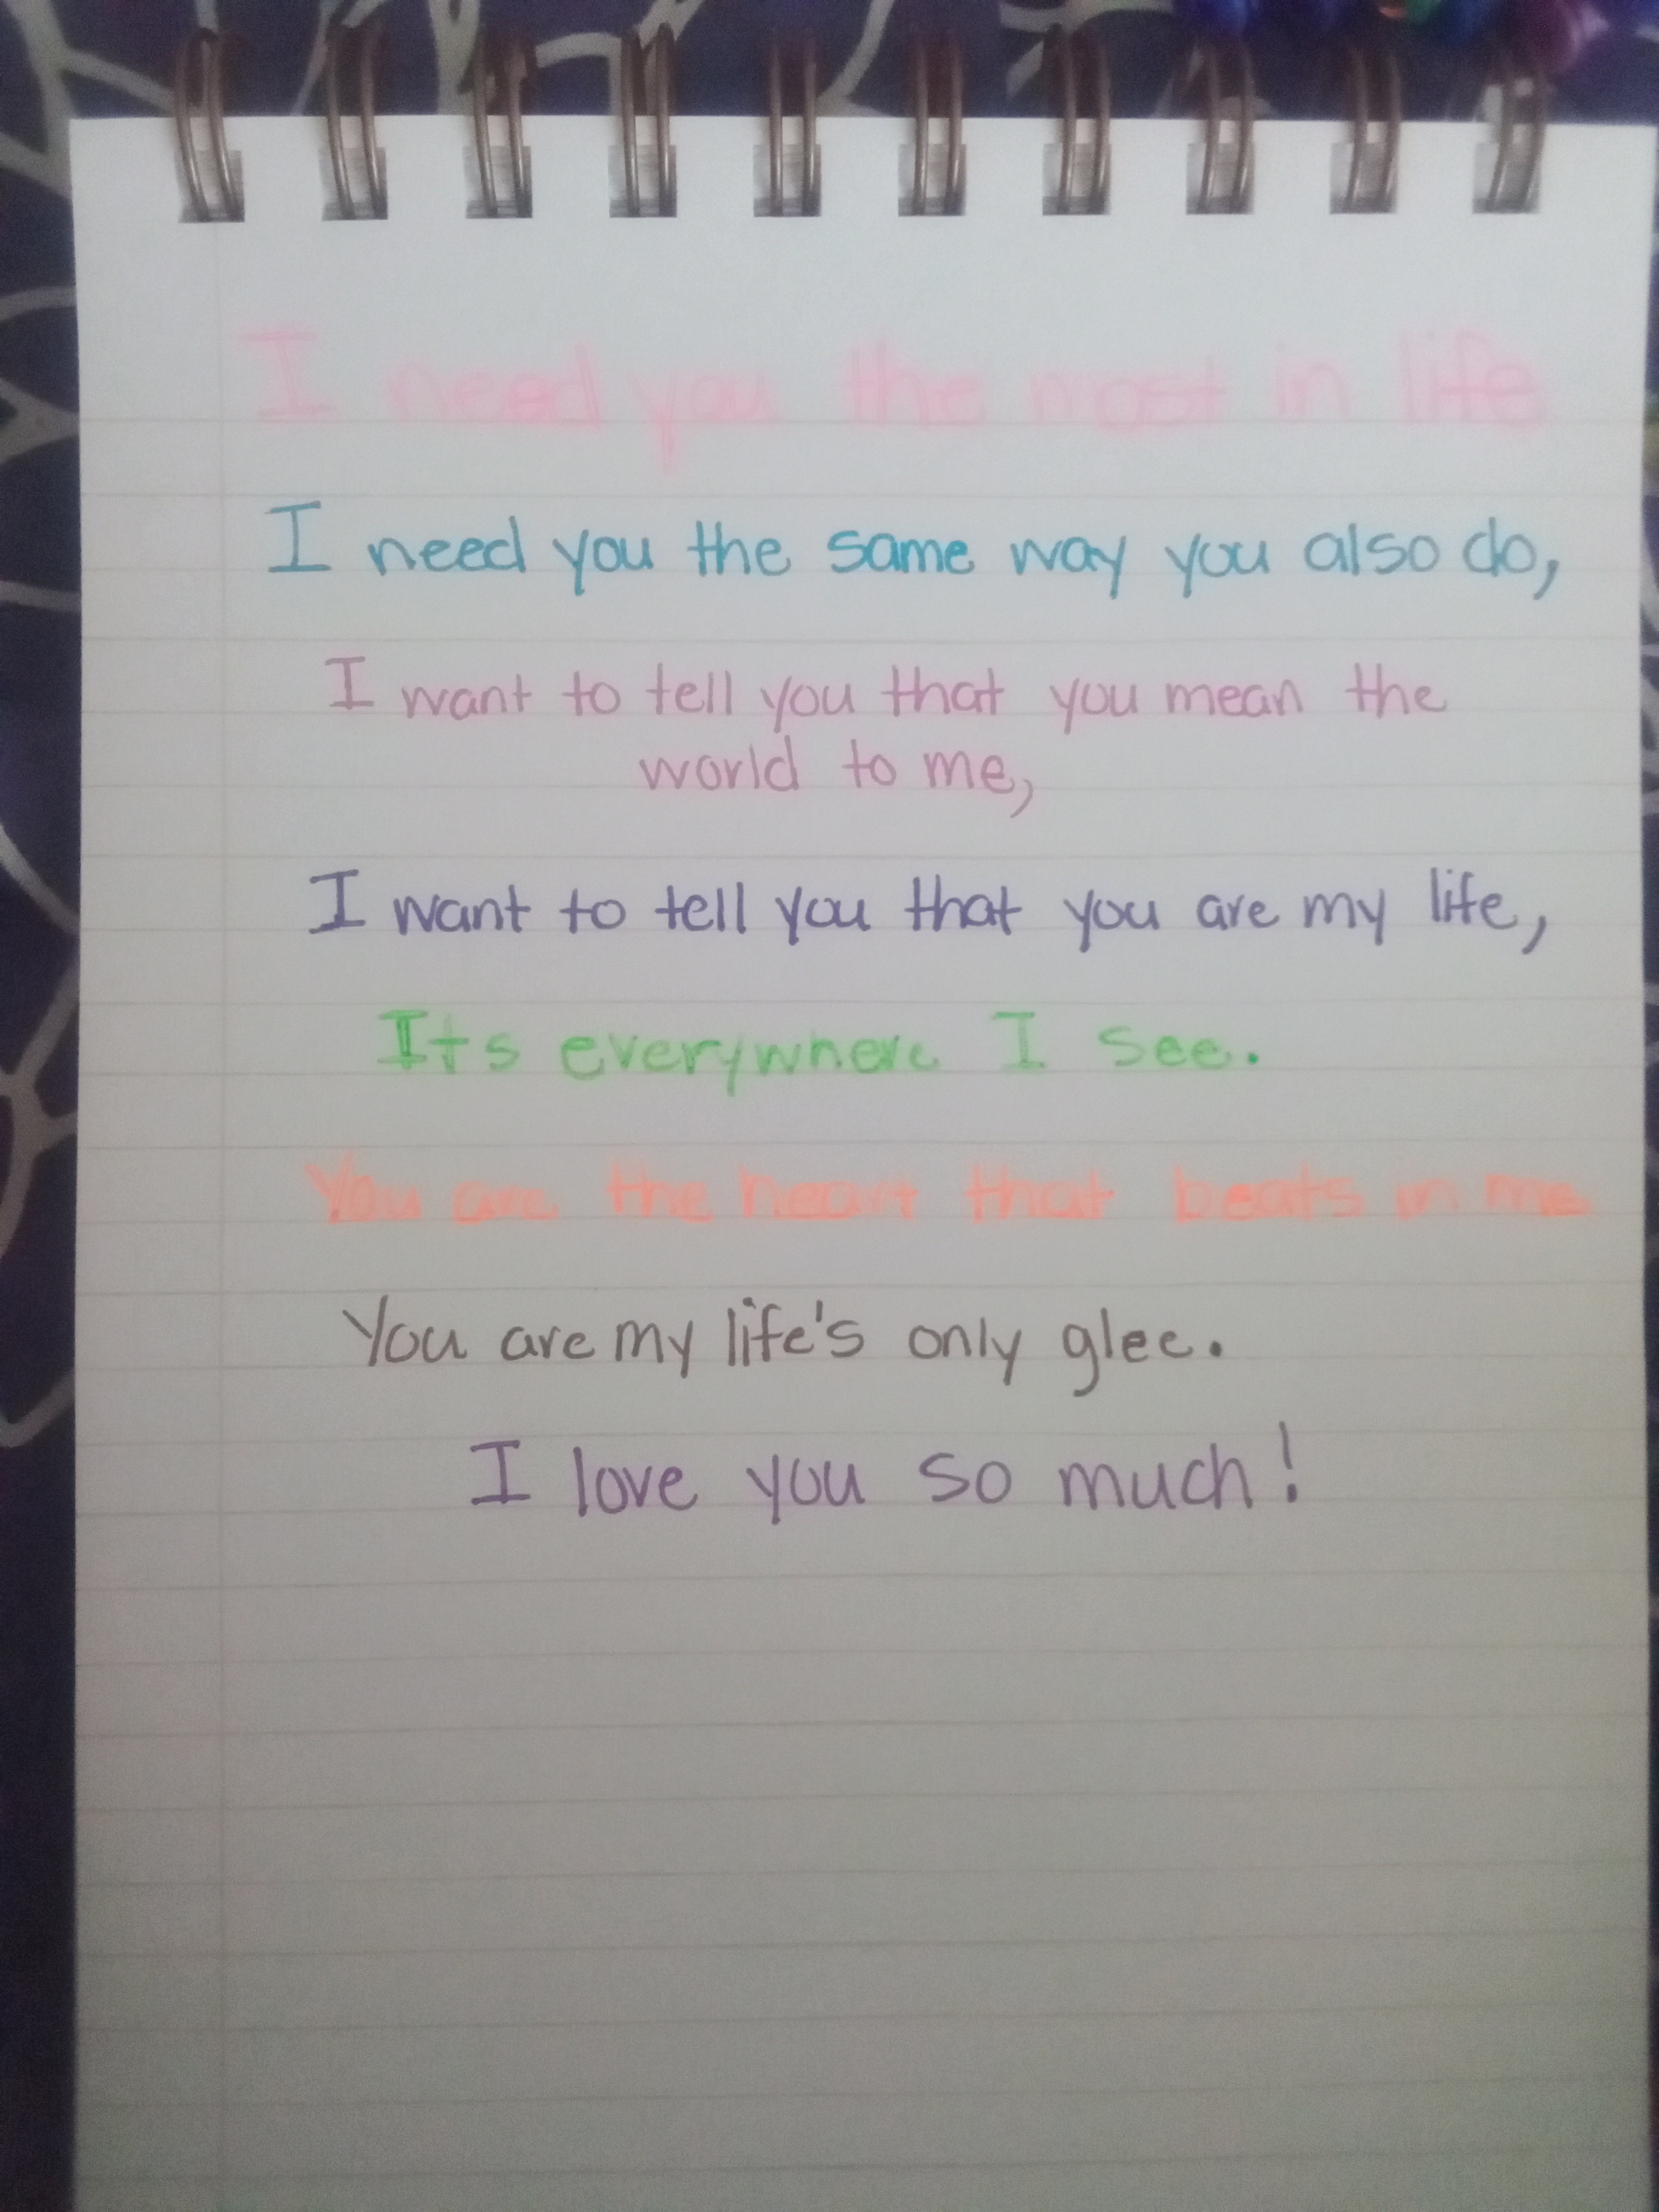 I need you the most in life
I need you the same way you also do,
I want to tell you that you mean the
world to me,
I want to tell you that you are my life,
Its everywhere I see.
You are the heart that beats in me
You are my life's only glee.
I love you so much!